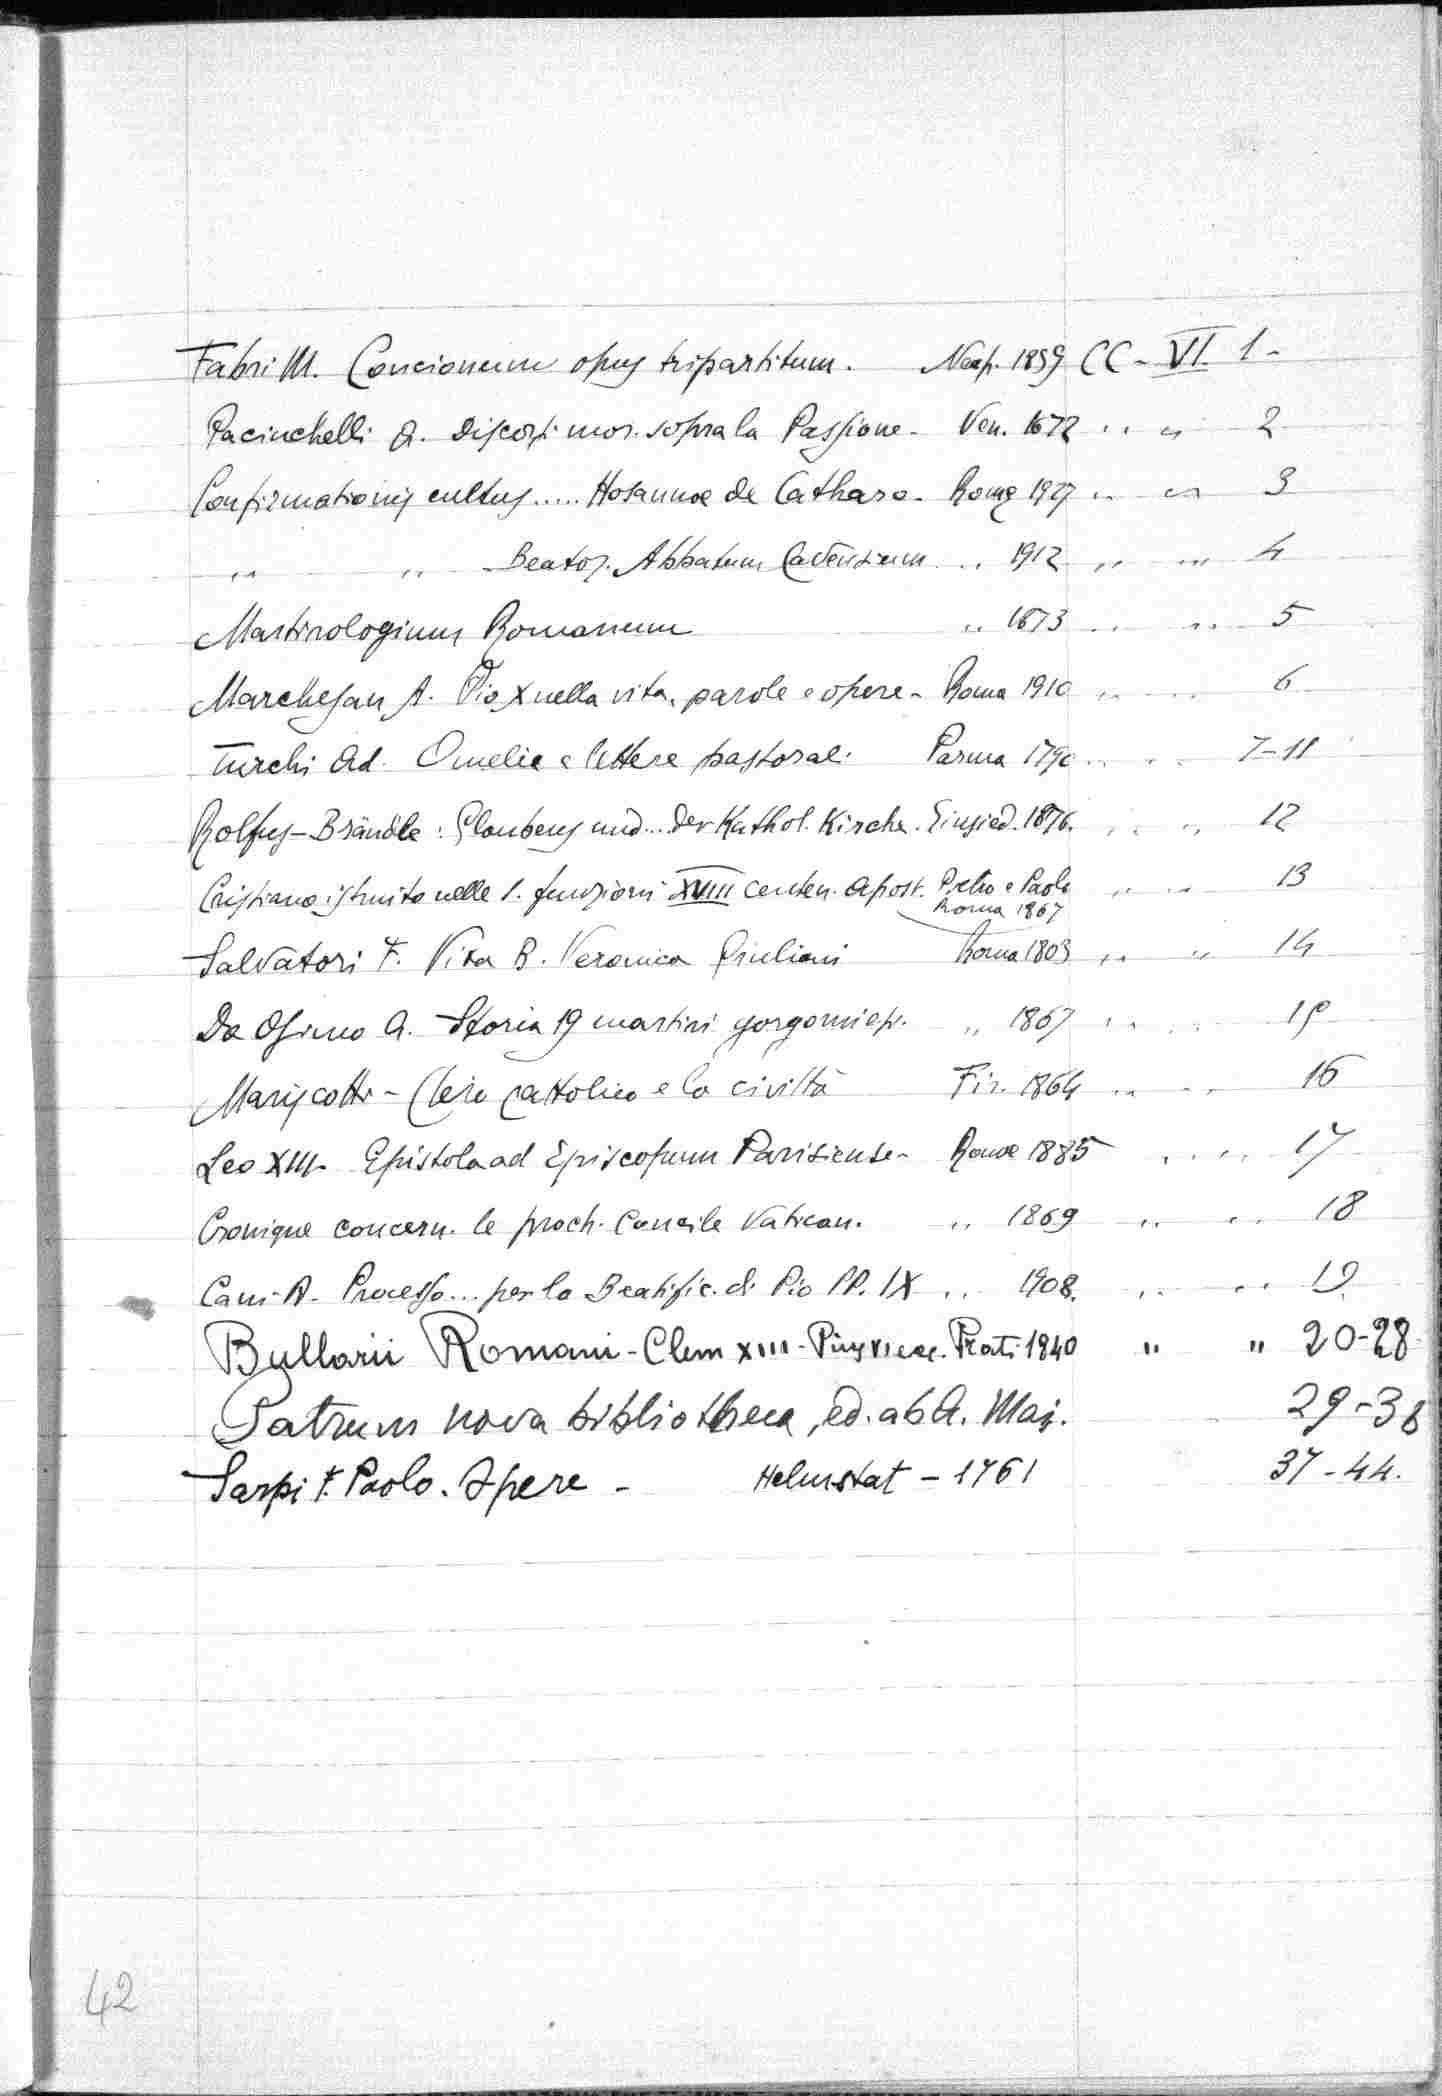 Fabri M. Concionum opus tripartitum. Neap. 1859 CC - VI. 1 -
Pacinchelli A. Discorsi mor. sopra la Passione - Ven. 1672 " " 2
Confirmationis cultus ..... Hosannae de Catharo - Romae 1927 " " 3
" " Beator. Abbatum Cavensium " 1912 " " 4
Martirologium Romanum " 1673 " " 5
Marchesan A. Pio X nella vita, parole e opere - Roma 1910 " " 6
Turchi Ad. Omelie e lettere pastorali Parma 1790 " " 7-11
Rolfus-Brändle : Glaubens und ... der Kathol. Kirche. Einsied. 1876. " " 12
Cristiano istruito nelle S. funzioni XVIII centen. apost. Pietro e Paolo " " 13
Roma 1867
Salvatori F. Vita B. Veronica Giuliani Roma 1803 " " 14
Da Osimo A. Storia 19 martiri gorgomiesi. " 1867 " " 15
Mariscotti - Clero cattolico e la civiltà Fir. 1864 " " 16
Leo XIII. Epistola ad Episcopum Parisiense - Romae 1885 " " 17
Cronique concern. le proch. Concile Vatican. " 1869 " " 18
Cani A. Processo ... per la Beatific. di Pio PP. IX " 1908. " " 19
Bullarii Romani - Clem XIII - Pius VIII ec. Prati 1840 " " 20-28
Patrum nova bibliotheca, ed. ab A. Mai. 29-36
Sarpi F. Paolo. Opere - Helmstat - 1761 37-44.
42